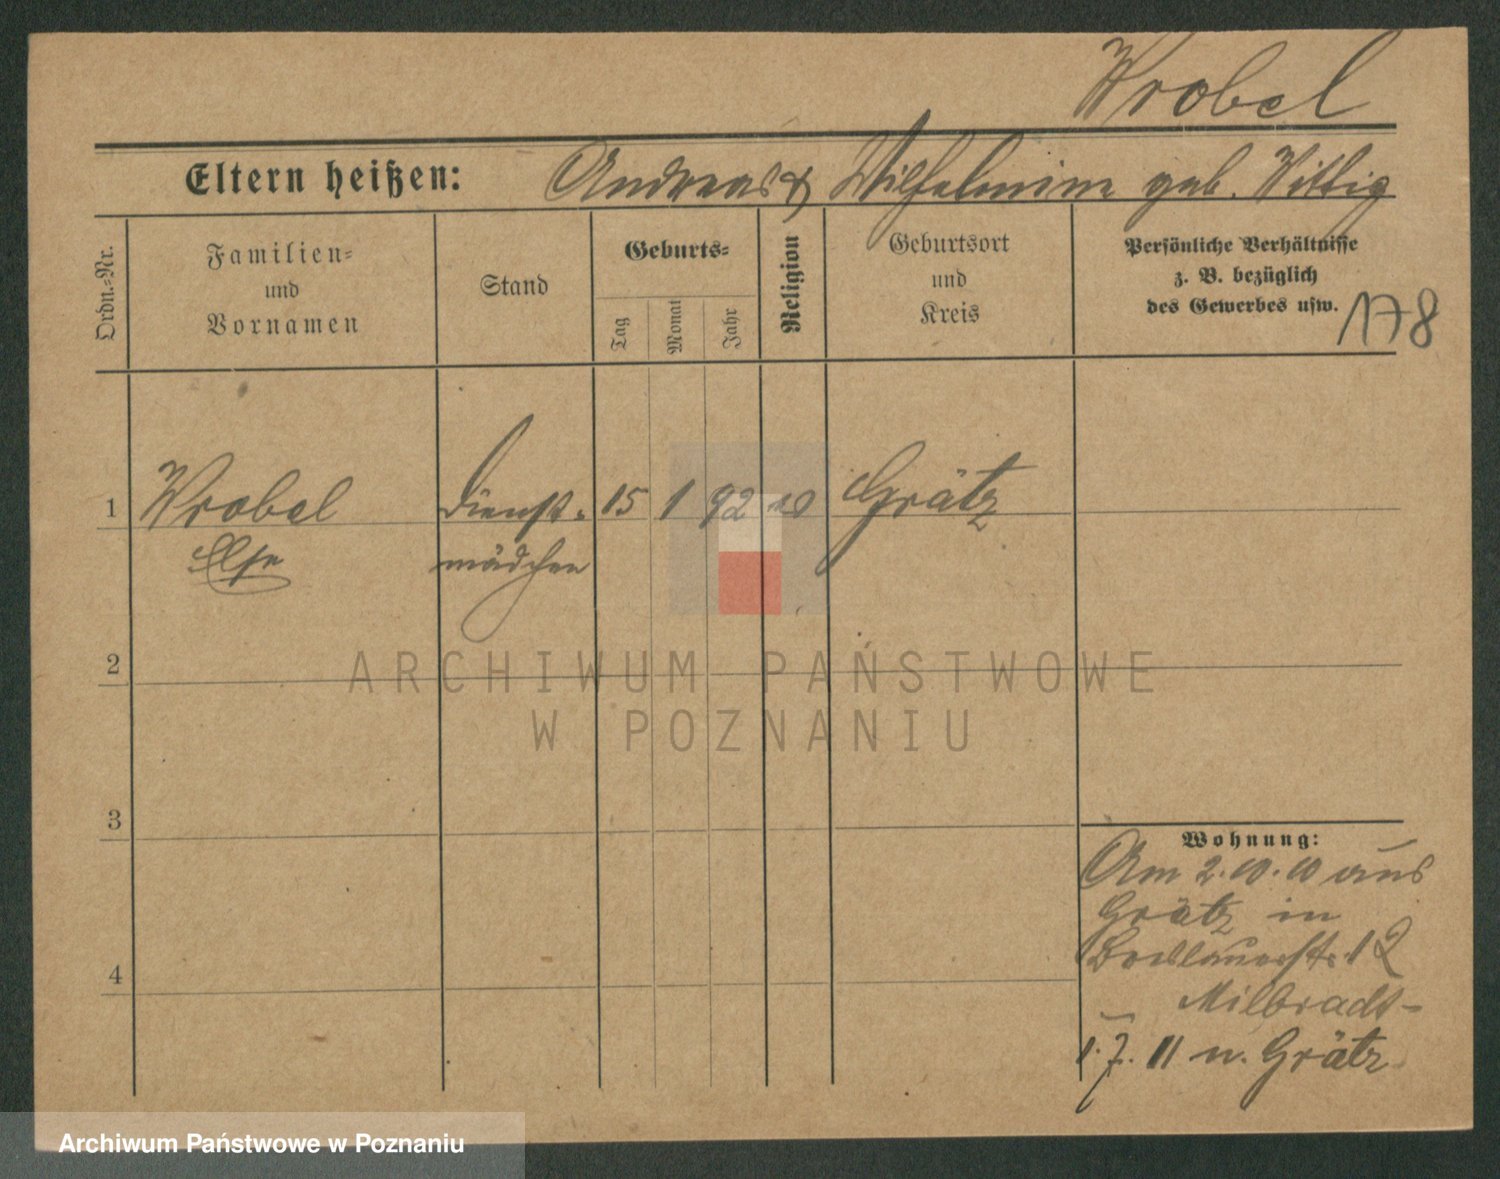 Wrobel
Eltern heißen: Andreas & Wilhelmine geb. Wittig
Ordn.-Nr.
Familien-
und
Vornamen
Stand
Geburts-
Tag
Monat
Jahr
Religion
Geburtsort
und
Kreis
Persönliche Verhältnisse
z. B. bezüglich
des Gewerbes usw.
178
1 Wrobel Dienst- 15 1 92 Grätz
Else mädchen
2
3
4
Wohnung:
Am 2.10.10 aus
Grätz in
Breslauerstr. 12
Milbradt-
1.7.11 n. Grätz
ARCHIWUM PAŃSTWOWE
W POZNANIU
Archiwum Państwowe w Poznaniu